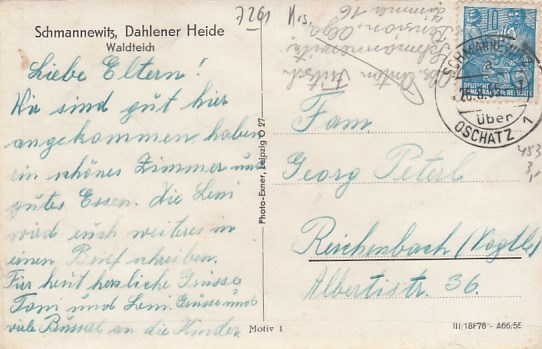 Schmannewitz, Dahlener Heide
Waldteich
7261
Liebe Eltern!
Wir sind gut hier
angekommen haben
ein schönes Zimmer und
gutes Essen. Die Leni
wird euch weiteres in
einen Brief schreiben.
Für heut herzliche Grüsse
Toni und Leni. Grüsse und
viele Bussal an die Kinder
Photo-Exner, Leipzig O 27
Motiv 1
Abs. Anton
Schmannewitz
Pension Olga
Zimmer 16
SCHMANNEWITZ
a
über
OSCHATZ 1
453
3,-
Fam.
Georg Peterl
Reichenbach (Vogtld)
Albertistr. 36.
III/18/F76 - A66/55